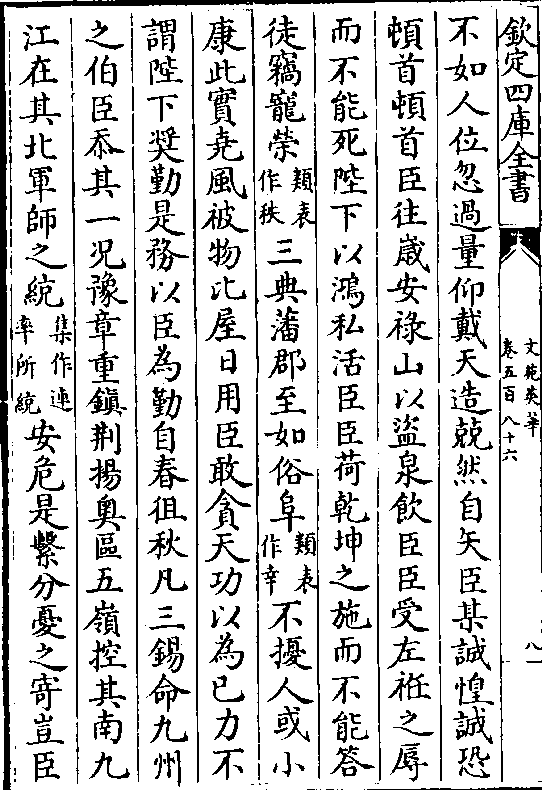 欽定四庫全書
文苑英華
卷五百八十六
八
不如人位忽過量仰戴天造兢然自矢臣某誠惶誠恐
頓首頓首臣往歲安祿山以盜泉飲臣臣受左袵之辱
而不能死陛下以鴻私活臣臣荷乾坤之施而不能答
徒竊寵榮類表作秩三典藩郡至如俗阜類表作幸不擾人或小
康此實堯風被物比屋日用臣敢貪天功以為已力不
謂陛下奨勤是務以臣為勤自春徂秋凡三錫命九州
之伯臣忝其一况豫章重鎮荆揚奥區五嶺控其南九
江在其北軍師之統集作連率所統安危是繫分憂之寄豈臣